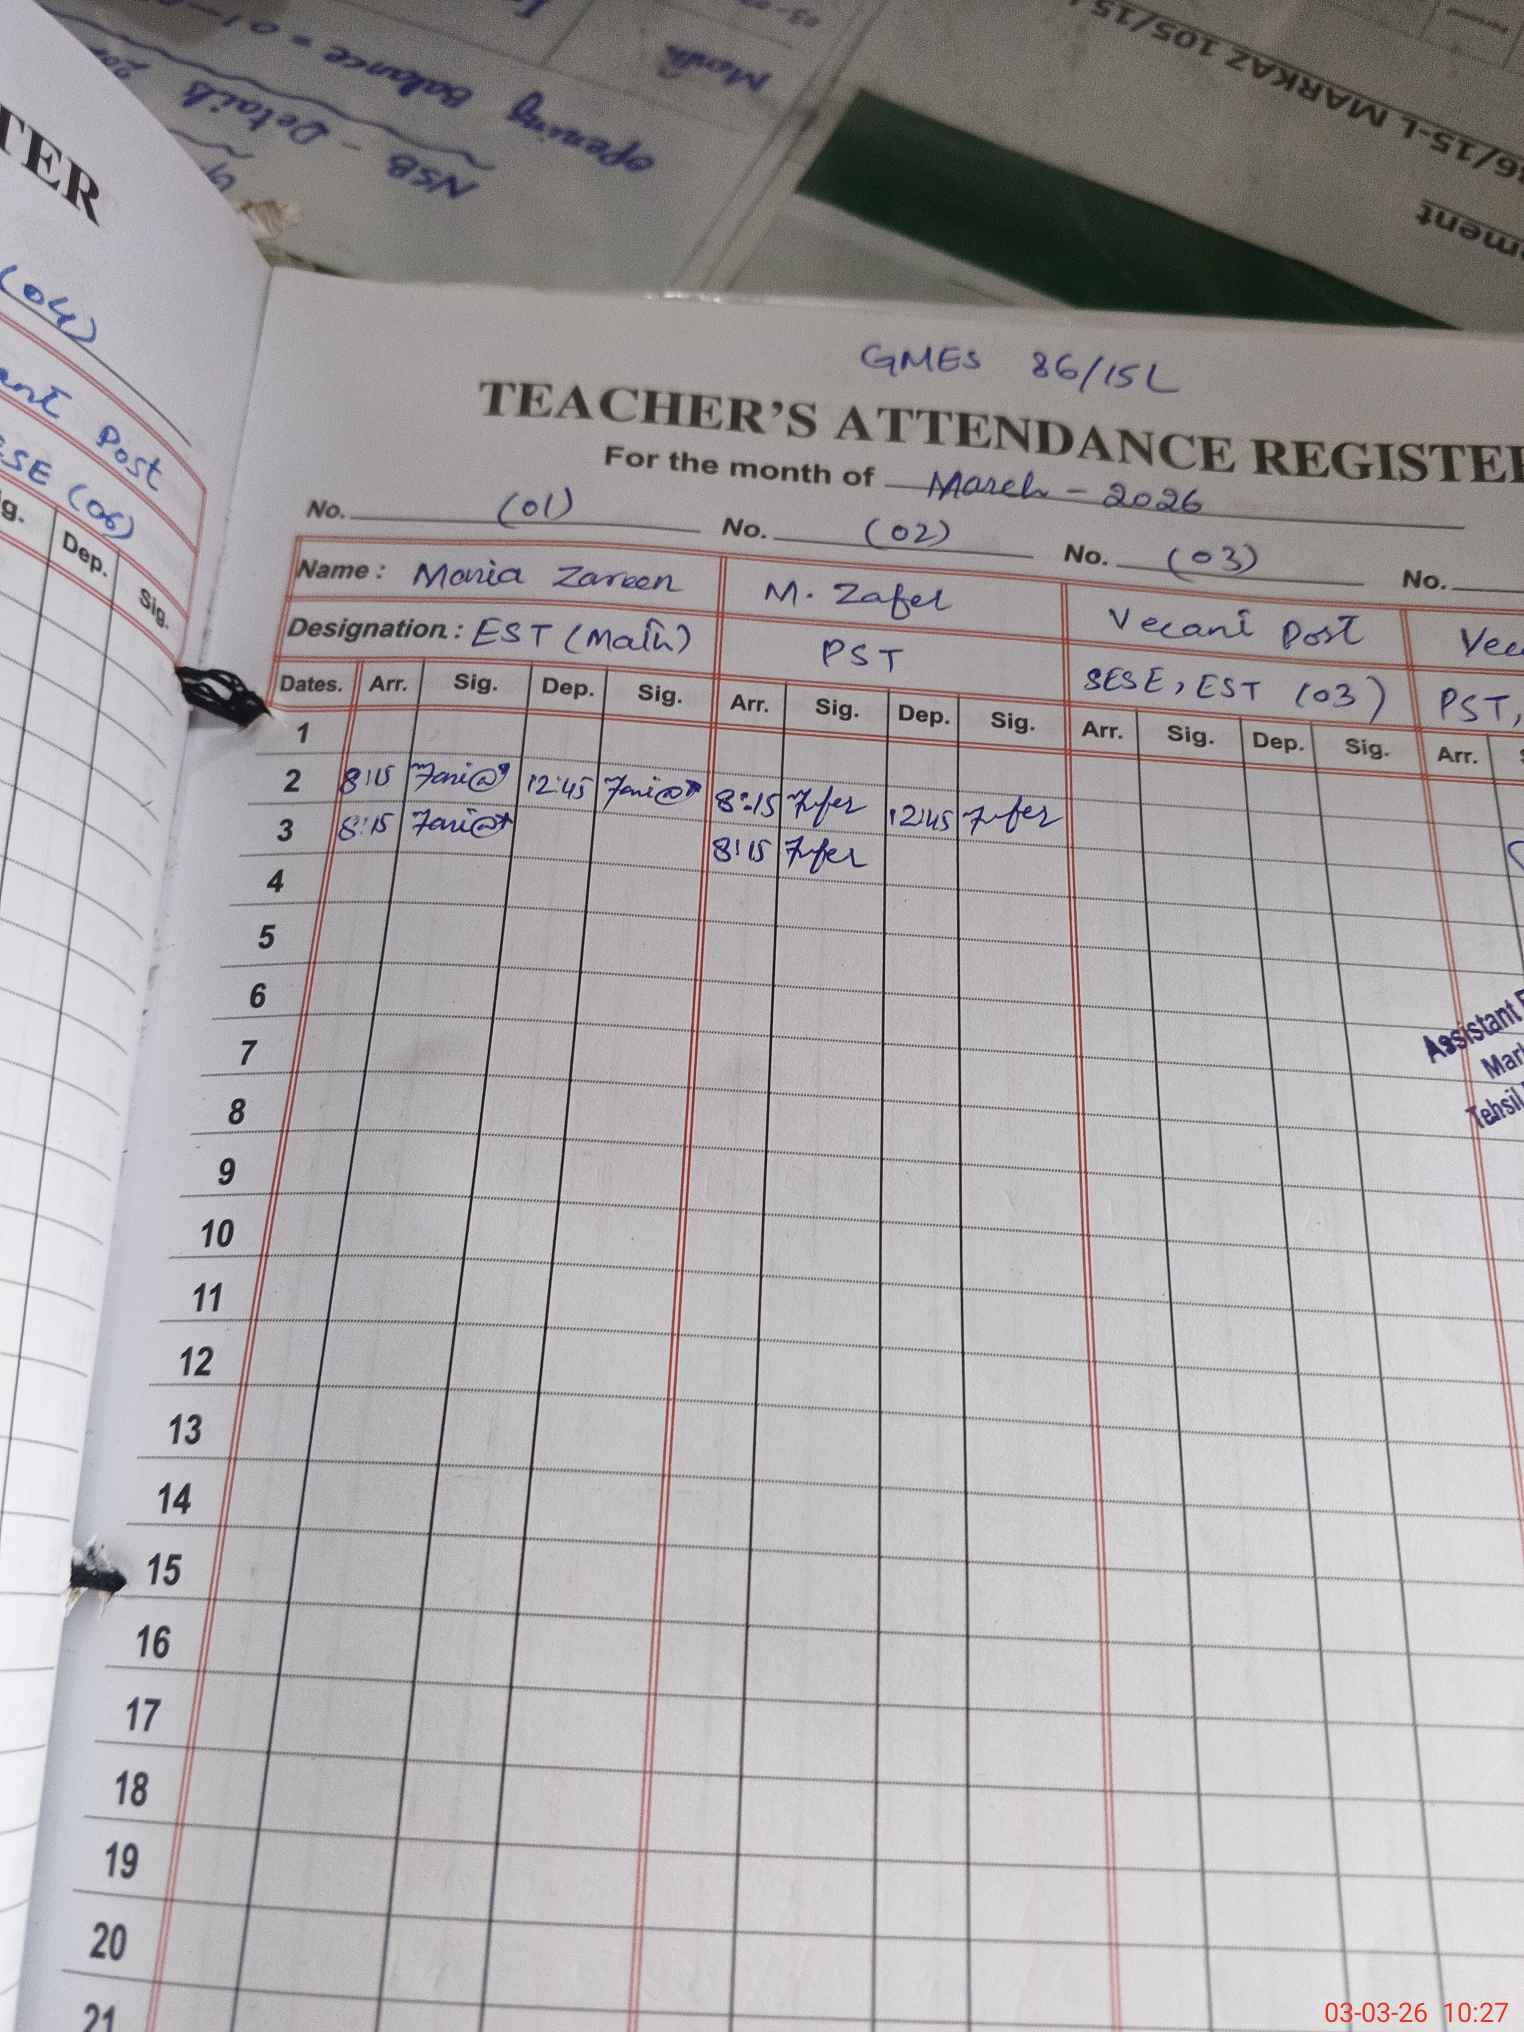 Month
opening Balance = 01-
NSB - Details
36/15-L MARKAZ 105/15
TER
(04)
Post
ESE (06)
Dep.
Sig.
GMES 86/15L
TEACHER'S ATTENDANCE REGISTER
For the month of March - 2026
No. (01) No. (02) No. (03) No.
Name: Maria Zareen M. Zafer Vecant Post
Designation: EST (Math) PST SESE, EST (03) PST,
Dates. Arr. Sig. Dep. Sig. Arr. Sig. Dep. Sig. Arr. Sig. Dep. Sig. Arr.
1
2 8:15 12:45 8:15 Zafer 12:45 Zafer
3 8:15 8:15 Zafer
4
5
6
7
8
9
10
11
12
13
14
15
16
17
18
19
20
21
Assistant
Tehsil
03-03-26 10:27